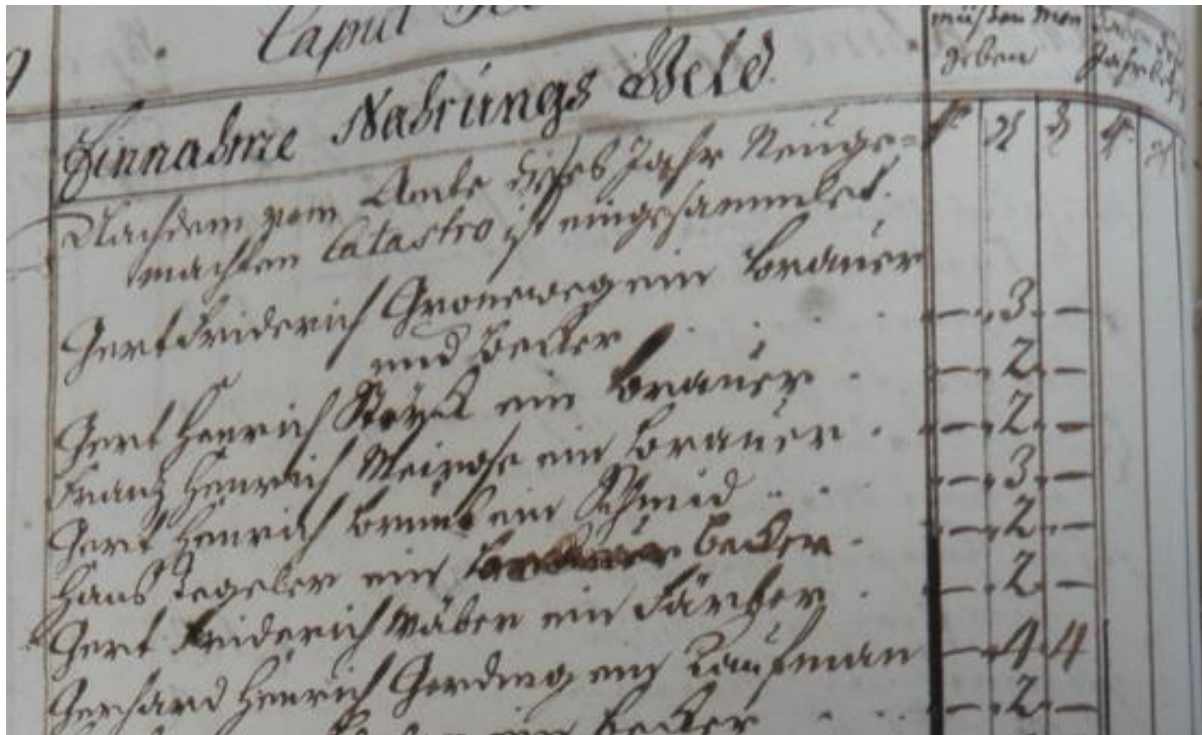 Caput
müßen Mon
geben
Einnahme Nahrungs Geld
Nachdem vom Ambte dises Jahr Neuge=
machten Catastro ist eingesammlet.
Gert Friderich Groneweg ein Brauer
und Becker — 3 —
Gert Henrich ein Brauer — 2 —
Frantz Henrich Meirose ein Brauer — 2 —
Gert Henrich Bruns ein Schmid — 3 —
Hans Tegeler ein Becker — 2 —
Gert Friderich Wäber ein Färber — 2 —
Gerhard Henrich Gerding ein Kaufman — 4 4
ein Becker — 2 —